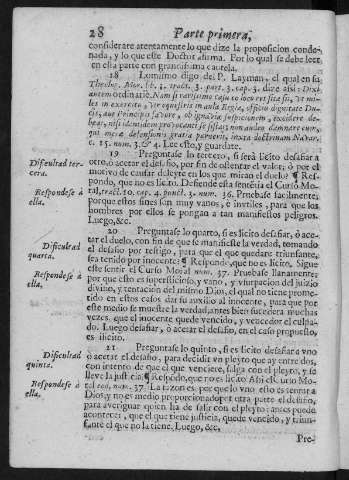 28 Parte primera,
considerare atentamente lo que dize la proposicion conde-
nada, y lo que este Doctor afirma. Por lo qual se debe leer
en esta parte con grandissima cautela.
18 Lo mismo digo del P. Layman, el qual en su
Theolog. Mor. lib. 3. tract. 3. part. 3. cap. 3. dize assi: Dixi-
antem ordinariè. Nam si rarissimo casu to incurrat sit, ut mi-
les in exercitu, vir equestris in aula Regia, officio dignitate Du-
cis, aut Principis favore, ob ignaviæ suspicionem, excidere de-
beat, nisi identidem provocanti se sistat; non audeo damnare eum,
qui meræ defensionis gratia paruerit, iuxta doctrinam Navar.
c. 15. num. 3. & 4. Lee esto, y guardate.
Dificultad ter-
cera.
19 Preguntase lo tercero, si serà licito desafiar a
otro, ò acetar el desafio, por fin de ostentar el valor; ò por el
motivo de causar deleyte en los que miran el duelo? ¶ Res-
Respondese à
ella.
pondo, que no es licito. Defiende esta sentēcia el Curso Mo-
ral, tract. 10. cap. 4. punct. 3. num. 36. Pruebase facilmente;
porque estos fines son muy vanos, è inutiles, para que los
hombres por ellos se pongan a tan manifiestos peligros.
Luego, &c.
20 Preguntase lo quarto, si es licito desafiar, ò ace-
Dificultad
quarta.
tar el duelo, con fin de que se manifieste la verdad, tomando
el desafio por testigo, para que el que quedare triunfante,
sea tenido por inocente? ¶ Respondo, que no es licito. Sigue
Respondese à
ella.
este sentir el Curso Moral num. 37. Pruebase llanamente;
por que esto es supersticioso, y vano, y usurpacion del juizio
divino, y tentacion del mismo Dios, el qual no tiene prome-
tido en estos casos dar su auxilio al inocente, para que por
este medio se muestre la verdad, antes bien sucederà muchas
vezes, que el inocente quede vencido, y vencedor el culpa-
do. Luego desafiar, ò acetar el desafio, en el caso propuesto,
es ilicito.
21 Preguntase lo quinto, si es licito desafiarse uno
Dificultad
quinta.
ò acetar el desafio, para decidir un pleyto que ay entre dos,
con intento de que el que venciere, salga con el pleyto, y se
lleve la justicia? ¶ Respōdo, que no es licito. Assi el Curso Mo-
Respondese à
ella.
ral num. 37. La razon es: porque lo uno esto es tentar a
Dios, y no es medio proporcionado por otra parte el desafio,
para averiguar quien ha de salir con el pleyto: antes puede
acontecer, que el que tiene justicia, quede vencido, y triun-
fante el que no la tiene. Luego, &c.
Pre-